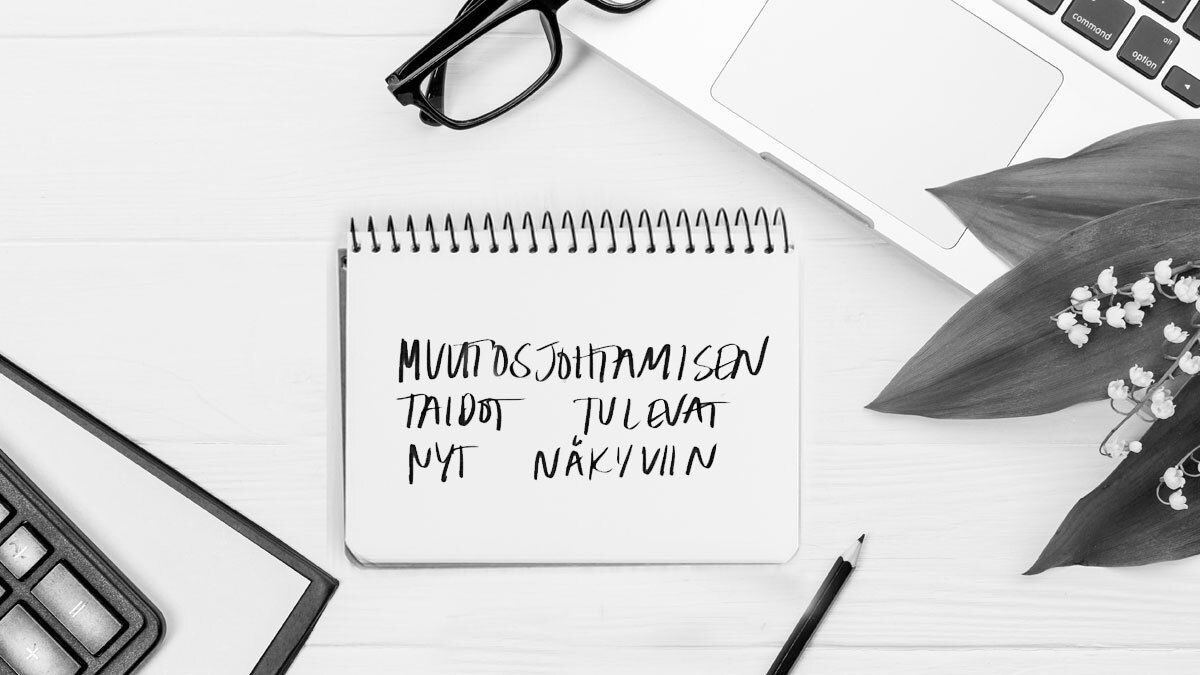 command
alt
option
MUUTOSJOHTAMISEN
TAIDOT TULEVAT
NYT NÄKYVIIN